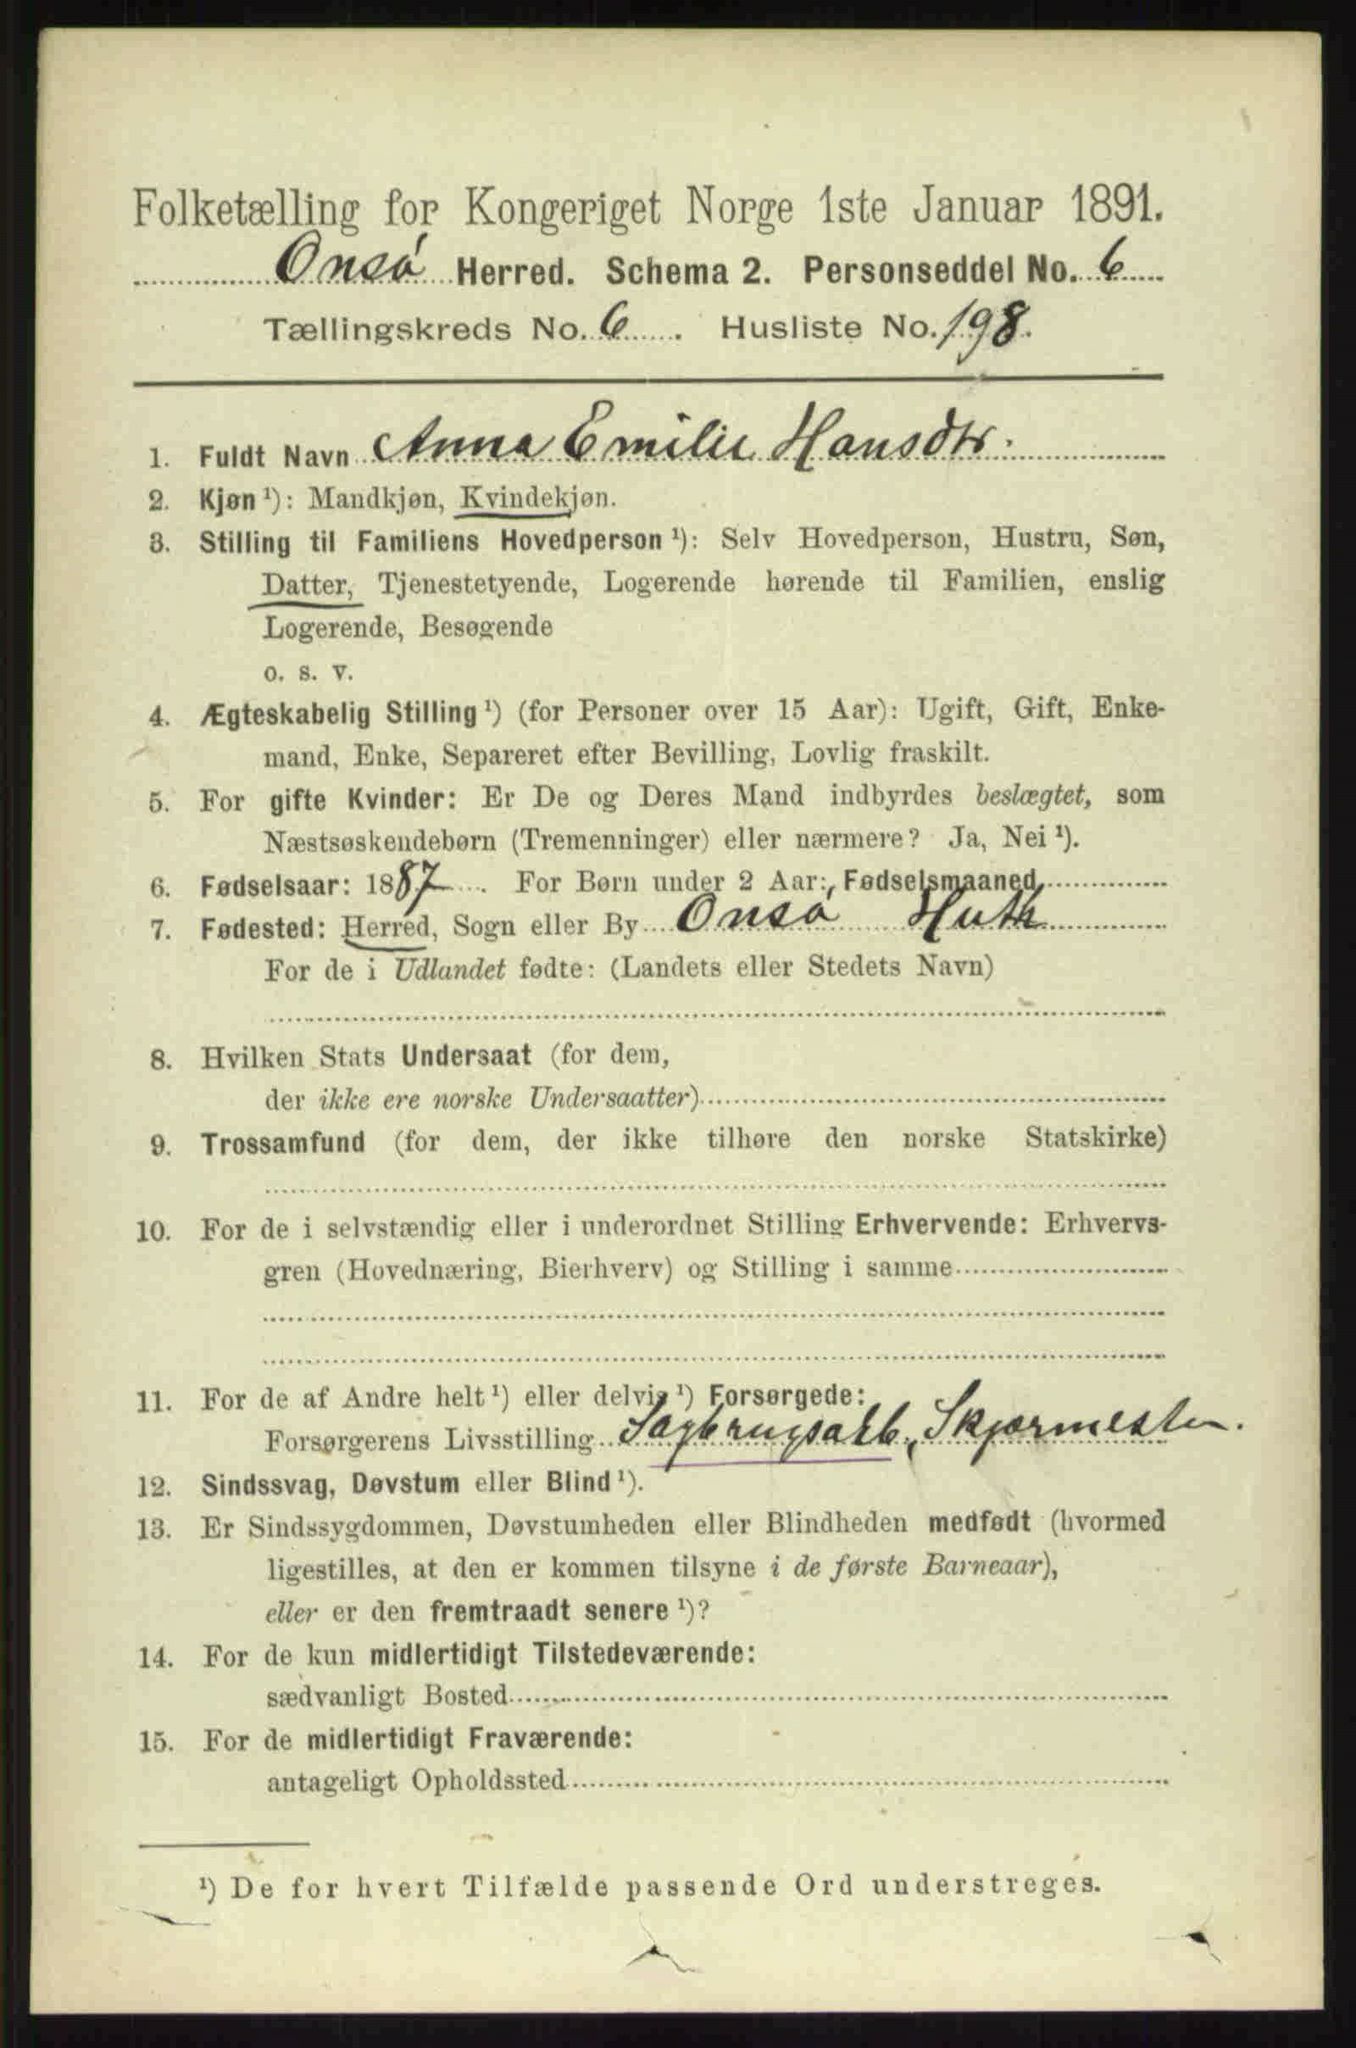 Folketælling for Kongeriget Norge 1ste Januar 1891.
Onsø Herred. Schema 2. Personseddel No. 6
Tællingskreds No. 6. Husliste No. 198.
1. Fuldt Navn Anna Emilie Hansdtr.
2. Kjøn ¹): Mandkjøn, Kvindekjøn.
3. Stilling til Familiens Hovedperson ¹): Selv Hovedperson, Hustru, Søn,
Datter, Tjenestetyende, Logerende hørende til Familien, enslig
Logerende, Besøgende
o. s. v.
4. Ægteskabelig Stilling ¹) (for Personer over 15 Aar): Ugift, Gift, Enke-
mand, Enke, Separeret efter Bevilling, Lovlig fraskilt.
5. For gifte Kvinder: Er De og Deres Mand indbyrdes beslægtet, som
Næstsøskendebørn (Tremenninger) eller nærmere? Ja, Nei ¹).
6. Fødselsaar: 1887. For Børn under 2 Aar: Fødselsmaaned
7. Fødested: Herred, Sogn eller By Onsø Huth
For de i Udlandet fødte: (Landets eller Stedets Navn)
8. Hvilken Stats Undersaat (for dem,
der ikke ere norske Undersaatter)
9. Trossamfund (for dem, der ikke tilhøre den norske Statskirke)
10. For de i selvstændig eller i underordnet Stilling Erhvervende: Erhvervs-
gren (Hovednæring, Bierhverv) og Stilling i samme
11. For de af Andre helt ¹) eller delvis ¹) Forsørgede:
Forsørgerens Livsstilling Sagbrugsarb., Skjærmester.
12. Sindssvag, Døvstum eller Blind ¹).
13. Er Sindssygdommen, Døvstumheden eller Blindheden medfødt (hvormed
ligestilles, at den er kommen tilsyne i de første Barneaar),
eller er den fremtraadt senere ¹)?
14. For de kun midlertidigt Tilstedeværende:
sædvanligt Bosted
15. For de midlertidigt Fraværende:
antageligt Opholdssted
¹) De for hvert Tilfælde passende Ord understreges.